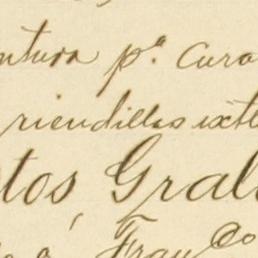 ntura pª Cura
riendillas ixtl
tos Gral
a Fran^co